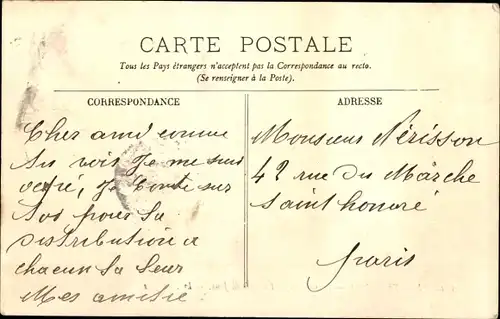 CARTE POSTALE
Tous les Pays étrangers n'acceptent pas la Correspondance au recto.
(Se renseigner à la Poste).
CORRESPONDANCE
Cher ami comme
tu vois Je me suis
Je Conte sur
toi pour la
distribution a
chacun La Leur
Mes amitié
ADRESSE
Monsieur Nérisson
42 rue du Marche
saint honoré
paris